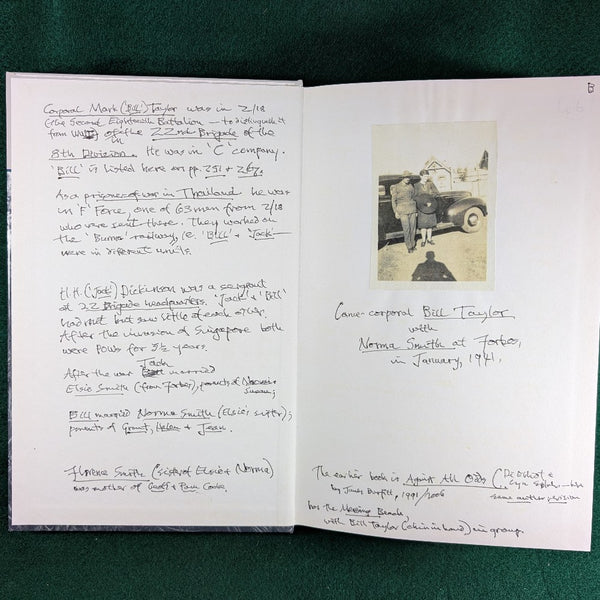 Corporal Mark ('Bill') Taylor was in 2/18
(the Second Eighteenth Battalion – to distinguish it
from WWI) of the 22nd Brigade of the
in
8th Division. He was in 'C' company.
'Bill' is listed here on pp. 251 & 267.
As a prisoner of war in Thailand he was
in 'F' Force, one of 63 men from 2/18
who were sent there. They worked on
the 'Burma' railway, i.e. 'Bill' & 'Jack'
were in different units.
H.H. ('Jack') Dickinson was a sergeant
at 22 Brigade headquarters. 'Jack' & 'Bill'
had met but saw little of each other.
After the invasion of Singapore both
were POWs for 3½ years.
Jack
After the war married
Elsie Smith (from Forbes), parents of
Bill married Norma Smith (Elsie's sister);
parents of Grant, Helen & Jean.
Florence Smith (sister of Elsie & Norma)
was mother of Geoff & Pam Cooke.
Lance-corporal Bill Taylor
with
Norma Smith at Forbes,
in January, 1941.
The earlier book is Against All Odds
by James Burfitt, 1991/2006
same author
has the
with Bill Taylor (chin in hand) in group.